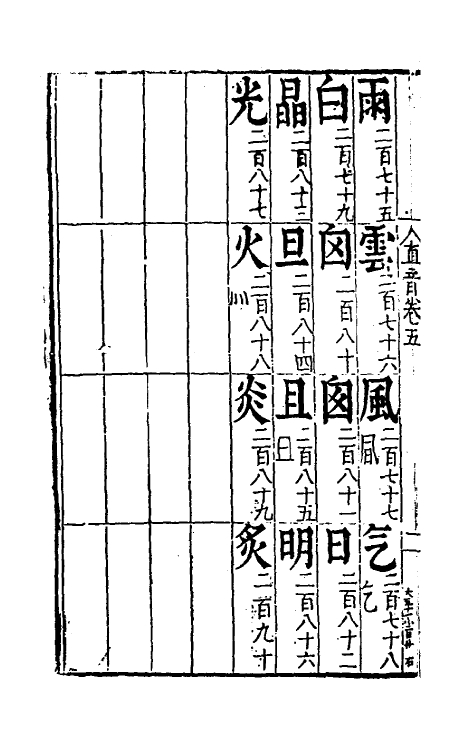 直音卷五
雨二百七十五
雲二百七十六
風二百七十七
气二百七十八
白二百七十九
囟二百八十
囱二百八十一
日二百八十二
晶二百八十三
旦二百八十四
且二百八十五
明二百八十六
光二百八十七
火二百八十八
炎二百八十九
炙二百九十